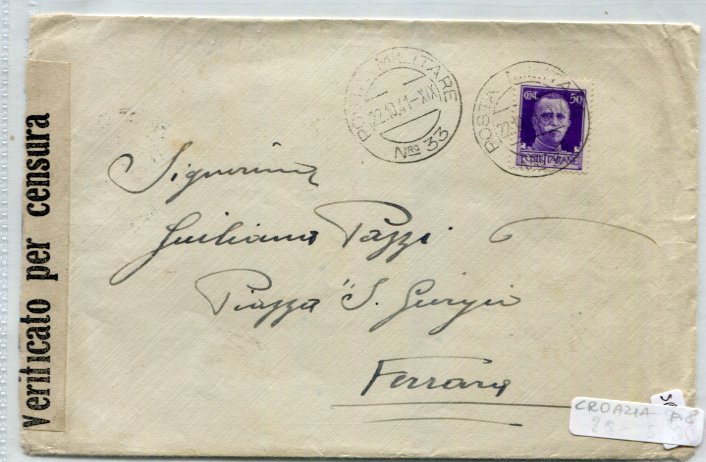 Verificato per censura
POSTA MILITARE
22.10.41-XIX
Nro 33
POSTA MILITA
CENT. 50
POSTE ITALIANE
Signorina
Giuliana Pazzi
Piazza "S. Giorgio
Ferrara
CROAZIA P.8